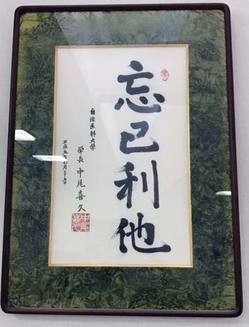 忘己利他
自治医科大学
學長 中尾喜久